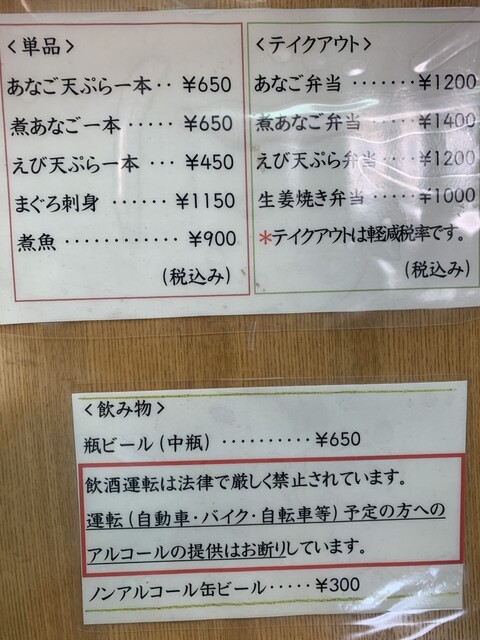 ＜単品＞
あなご天ぷら一本‥ ¥650
煮あなご一本‥‥‥ ¥650
えび天ぷら一本 ‥‥ ¥450
まぐろ刺身 ‥‥‥ ¥1150
煮魚 ‥‥‥‥‥‥ ¥900
(税込み)
＜テイクアウト＞
あなご弁当 ‥‥‥‥¥1200
煮あなご弁当 ‥‥‥¥1400
えび天ぷら弁当‥‥¥1200
生姜焼き弁当 ‥‥‥¥1000
＊テイクアウトは軽減税率です。
(税込み)
＜飲み物＞
瓶ビール(中瓶) ‥‥‥‥‥¥650
飲酒運転は法律で厳しく禁止されています。
運転(自動車・バイク・自転車等)予定の方への
アルコールの提供はお断りしています。
ノンアルコール缶ビール‥‥‥¥300